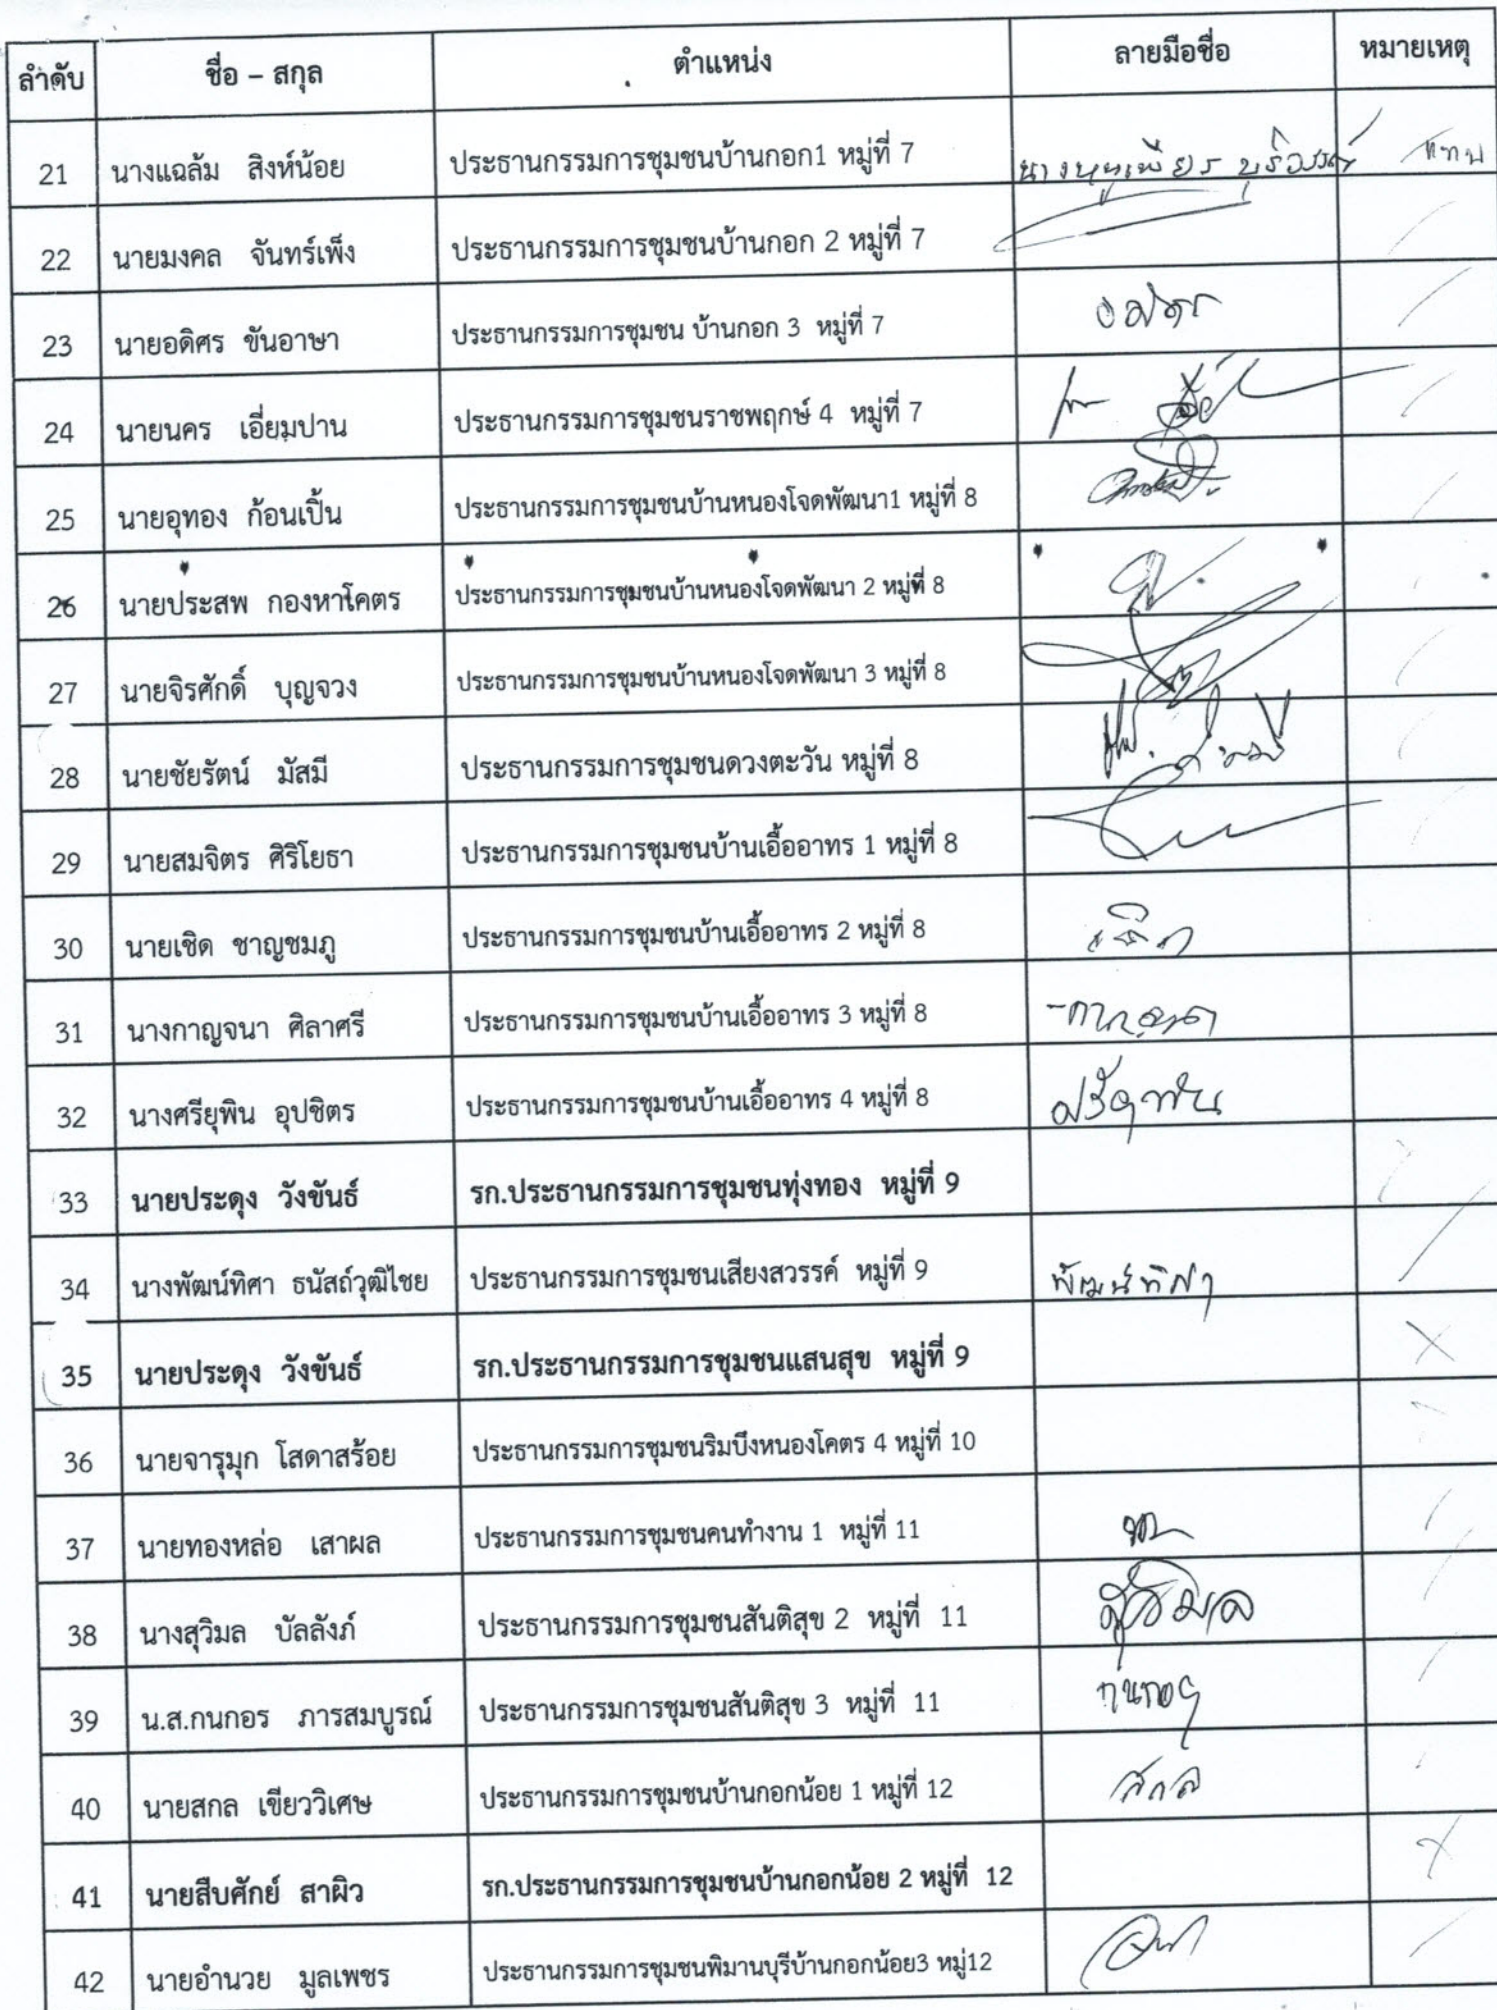 ลำดับ ชื่อ – สกุล ตำแหน่ง ลายมือชื่อ หมายเหตุ
21 นางแฉล้ม สิงห์น้อย ประธานกรรมการชุมชนบ้านกอก1 หมู่ที่ 7 แทน
22 นายมงคล จันทร์เพ็ง ประธานกรรมการชุมชนบ้านกอก 2 หมู่ที่ 7
23 นายอดิศร ขันอาษา ประธานกรรมการชุมชน บ้านกอก 3 หมู่ที่ 7
24 นายนคร เอี่ยมปาน ประธานกรรมการชุมชนราชพฤกษ์ 4 หมู่ที่ 7
25 นายอุทอง ก้อนเปิ้น ประธานกรรมการชุมชนบ้านหนองโจดพัฒนา1 หมู่ที่ 8
26 นายประสพ กองหาโคตร ประธานกรรมการชุมชนบ้านหนองโจดพัฒนา 2 หมู่ที่ 8
27 นายจิรศักดิ์ บุญจวง ประธานกรรมการชุมชนบ้านหนองโจดพัฒนา 3 หมู่ที่ 8
28 นายชัยรัตน์ มัสมี ประธานกรรมการชุมชนดวงตะวัน หมู่ที่ 8
29 นายสมจิตร ศิริโยธา ประธานกรรมการชุมชนบ้านเอื้ออาทร 1 หมู่ที่ 8
30 นายเชิด ชาญชมภู ประธานกรรมการชุมชนบ้านเอื้ออาทร 2 หมู่ที่ 8
31 นางกาญจนา ศิลาศรี ประธานกรรมการชุมชนบ้านเอื้ออาทร 3 หมู่ที่ 8 กาญจนา
32 นางศรียุพิน อุปชิตร ประธานกรรมการชุมชนบ้านเอื้ออาทร 4 หมู่ที่ 8
33 นายประดุง วังขันธ์ รก.ประธานกรรมการชุมชนทุ่งทอง หมู่ที่ 9
34 นางพัฒน์ทิศา ธนัสถ์วุฒิไชย ประธานกรรมการชุมชนเสียงสวรรค์ หมู่ที่ 9 พัฒน์ทิศา
35 นายประดุง วังขันธ์ รก.ประธานกรรมการชุมชนแสนสุข หมู่ที่ 9
36 นายจารุมุก โสดาสร้อย ประธานกรรมการชุมชนริมบึงหนองโคตร 4 หมู่ที่ 10
37 นายทองหล่อ เสาผล ประธานกรรมการชุมชนคนทำงาน 1 หมู่ที่ 11
38 นางสุวิมล บัลลังภ์ ประธานกรรมการชุมชนสันติสุข 2 หมู่ที่ 11 สุวิมล
39 น.ส.กนกอร ภารสมบูรณ์ ประธานกรรมการชุมชนสันติสุข 3 หมู่ที่ 11 กนกอร
40 นายสกล เขียววิเศษ ประธานกรรมการชุมชนบ้านกอกน้อย 1 หมู่ที่ 12 สกล
41 นายสืบศักย์ สาผิว รก.ประธานกรรมการชุมชนบ้านกอกน้อย 2 หมู่ที่ 12
42 นายอำนวย มูลเพชร ประธานกรรมการชุมชนพิมานบุรีบ้านกอกน้อย3 หมู่12